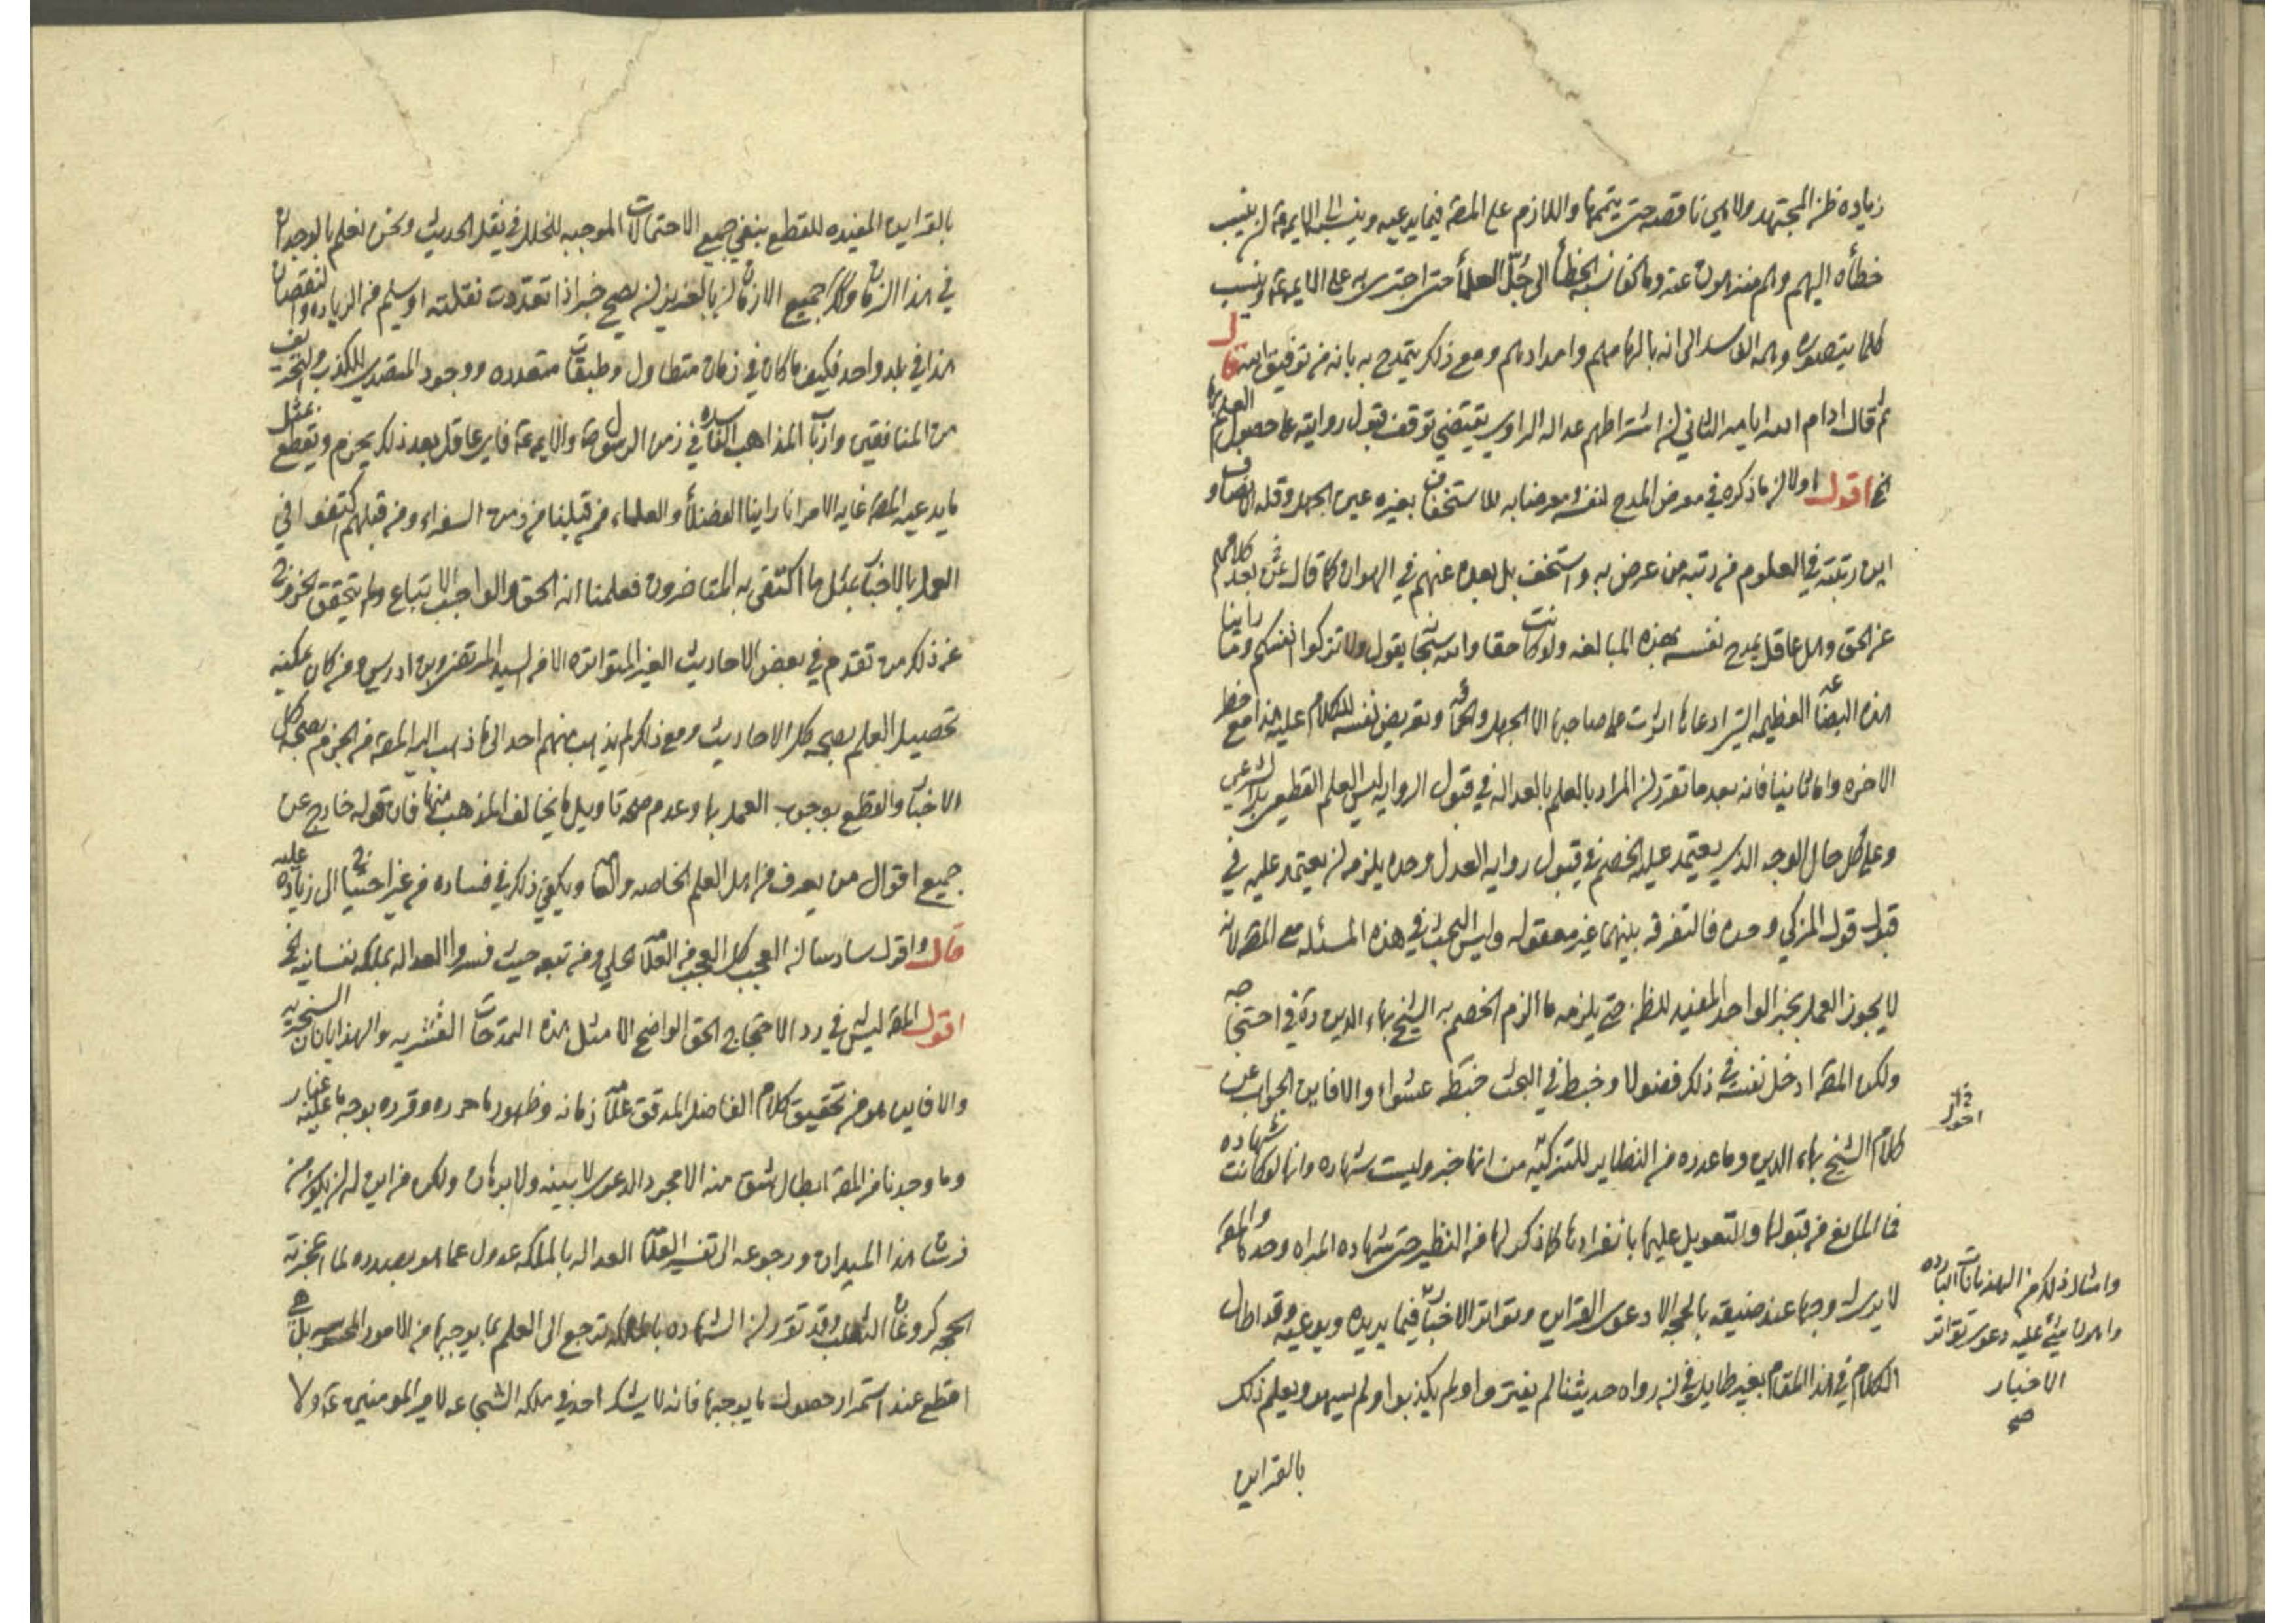 زياده ظن المجتهد ولا هي ناقصه حتى يتممها واللازم على المصه فيما يدعيه وينسبه الى الايمه ع ان ينسب
خطأه اليهم وهم منزهون عنه وما كفاه نسبه الخطأ الى جُلّ العلمأ حتى اجترى به على الايمه ع وينسب
كلما يتصوره وهمه الفاسد الى انه بالهامهم وامدادهم ومع ذلك يتمدح به بانه من توفيق الله قال
ثم قال ادام الله ايامه الثاني ان اشتراطهم عداله الراوي يقتضي توقف قبول روايته على حصول العلم بها
الخ اقول اولا ان ما ذكره في معرض المدح لنفسه ومعرضا به للاستخفاف بغيره عين الجهل وقله الانصاف و
اين رتبته في العلوم من رتبه من عرض به واستخف بل بعده عنهم في الهوان كما قال بعد كلامهم
عن الحق وهل عاقل يمدح نفسه بهذه المبالغه ولو كانت حقا والله سبحانه يقول ولا تزكوا انفسكم وما رأينا
هذه البضاعه العظيمه التي ادعاها اثرت على صاحبها الا الجهل والحماقه وتعريض نفسه للكلام عليه هذا مع خطر
الاخره واما ثانيا فانه بعد ما تقرر ان المراد بالعلم بالعداله في قبول الروايه ليس العلم القطعي بل الشرعي
وعلى كل حال الوجه الذي يعتمد عليه الخصم في قبول روايه العدل وحده يلزمه ان يعتمد عليه في
قبول قول المزكي وحده فالتفرقه بينهما غير معقوله وليس البحث في هذه المسئله مع المصه لانه
لا يجوز العمل بخبر الواحد المفيد للظن حتى يلزمه ما الزم الخصم به الشيخ بهاء الدين ره في احتجاجه
ولكن المصه ادخل نفسه في ذلك فضولا وخبط في البحث خبطه عشواء والا فاين الجواب عن
كلام الشيخ بهاء الدين وما عدده من النظاير للتزكيه من انها خبر وليست شهاده وانها لو كانت شهاده
فما المانع من قبولها والتعويل عليها بانفرادها كما ذكر لها من النظير حتى شهاده المراه وحدها والمصه
لا يدري له وجها عند ضيقه بالحجه الا دعوى القراين وتواتر الاخبار فيما يريده ويدعيه وقد اطال
الكلام في هذا المقام بغير طايل في ان رواه حديثنا لم يفتروا ولم يكذبوا ولم يسهو ويعلم ذلك
بالقراين
وامثال ذلك من الهذيانات البارده
الاخبار
صح
بالقراين المفيده للقطع بنفي جميع الاحتمالات الموجبه للخلل في نقل الحديث ونحن نعلم بالوجدان
في هذا الزمان وكذا جميع الازمان انه بالعزيز ان يصح خبر اذا تعددت نقلته او يسلم من الزياده والنقصان
هذا في بلد واحد فكيف ما كان في زمان متطاول وطبقات متعدده ووجود المتصدي للكذب والتحريف
من المنافقين وارباب المذاهب الفاسده في زمن الرسول ص والايمه ع فاي عاقل بعد ذلك يجزم ويقطع بمثل
ما يدعيه المصه غايه الامر انا راينا الفضلأ والعلماء من قبلنا من زمن السفراء ومن قبلهم اكتفوا في
العمل بالاخبار بمثل ما اكتفى به المتاخرون فعلمنا انه الحق والواجب الاتباع ولم يتحقق الخروج
عن ذلك ممن تقدم في بعض الاحاديث الغير المتواتره الا من السيد المرتضى وبن ادريس ومن كان يمكنه
تحصيل العلم بصحه كل الاحاديث ومع ذلك لم يذهب منهم احد الى ما ذهب اليه المصه من الجزم بصحه كل
الاخبار والقطع بوجوب العمل بها وعدم صحه تاويل ما يخالف المذهب منها فان قوله خارج عن
جميع اقوال من يعرف من اهل العلم الخاصه والعامه ويكفي ذلك في فساده من غير احتياج الى زياده عليه
قال واقول سادسا ان العجب كل العجب من العلامه الحلي ومن تبعه حيث فسروا العداله بملكه نفسانيه الخ
اقول المصه ليس في رد الاحتجاج الحق الواضح الا مثل هذه التمدحات القشريه والهذايانات السخريه
والا فاين هو من تحقيق كلام الفاضل المدقق علامه زمانه وظهور ما حرره وقرره بوجه ما عليه غبار
وما وجدنا من المصه ابطال شيئ منه الا مجرد الدعوى لا ببينه ولا برهان ولكن من اين له ان يكون من
فرسان هذا الميدان ورجوعه الى تفسير العلامه العداله بالملكه عدول عما هو بصدده لما اعجزته
الحجه كروغان الثعلب وقد تقرر ان الشهاده بالملكه ترجع الى العلم بما يوجبها من الامور المحسوسه بل هي
اقطع عند استمرار حصول ما يوجبها فانه لا يشك احد في ملكه الشجاعه لامير المومنين ع ولا